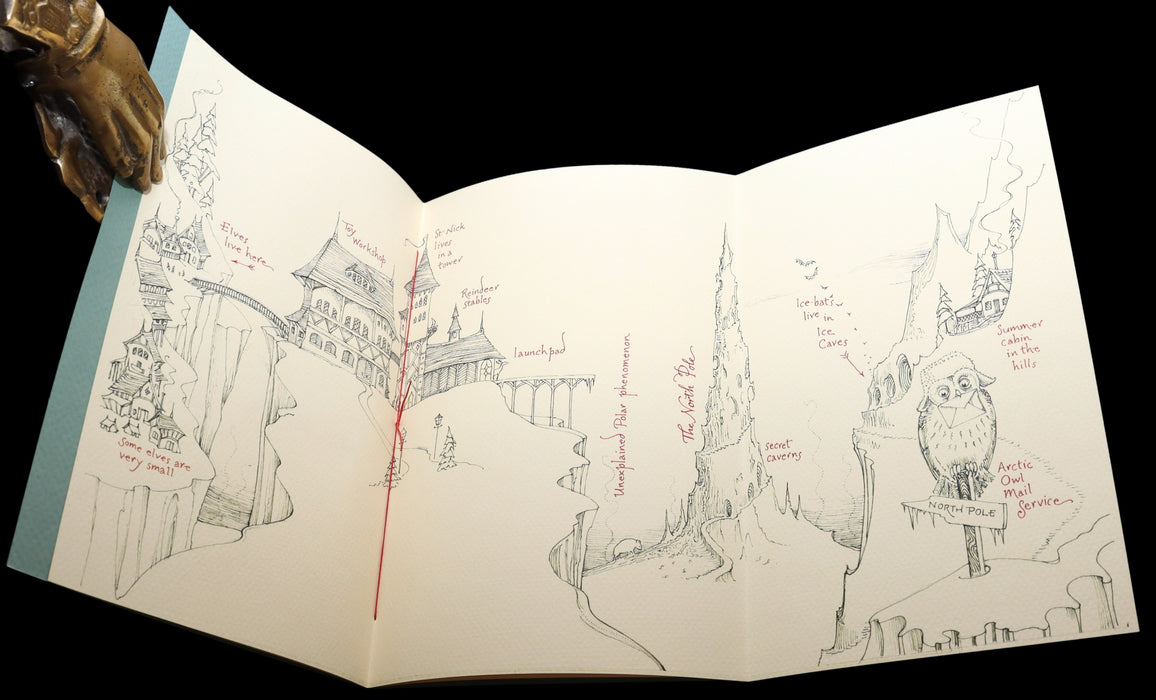 Elves
live here
Toy
Workshop
St Nick
lives
in a
tower
Reindeer
stables
launchpad
Some elves are
very small
Unexplained Polar phenomenon
The North Pole
secret
caverns
Ice-bats
live in
Ice
Caves
Summer
cabin
in the
hills
Arctic
Owl
Mail
Service
NORTH POLE